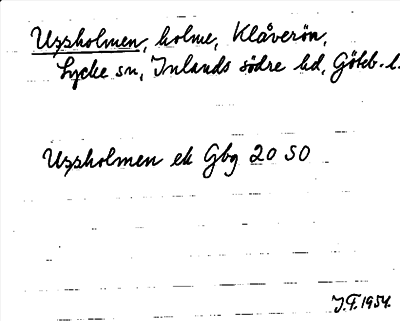 Uxsholmen, holme, Klåverön,
Lycke sn, Inlands södre hd, Göteb. l.
Uxsholmen ek Gbg 20 SO
J.F. 1954.